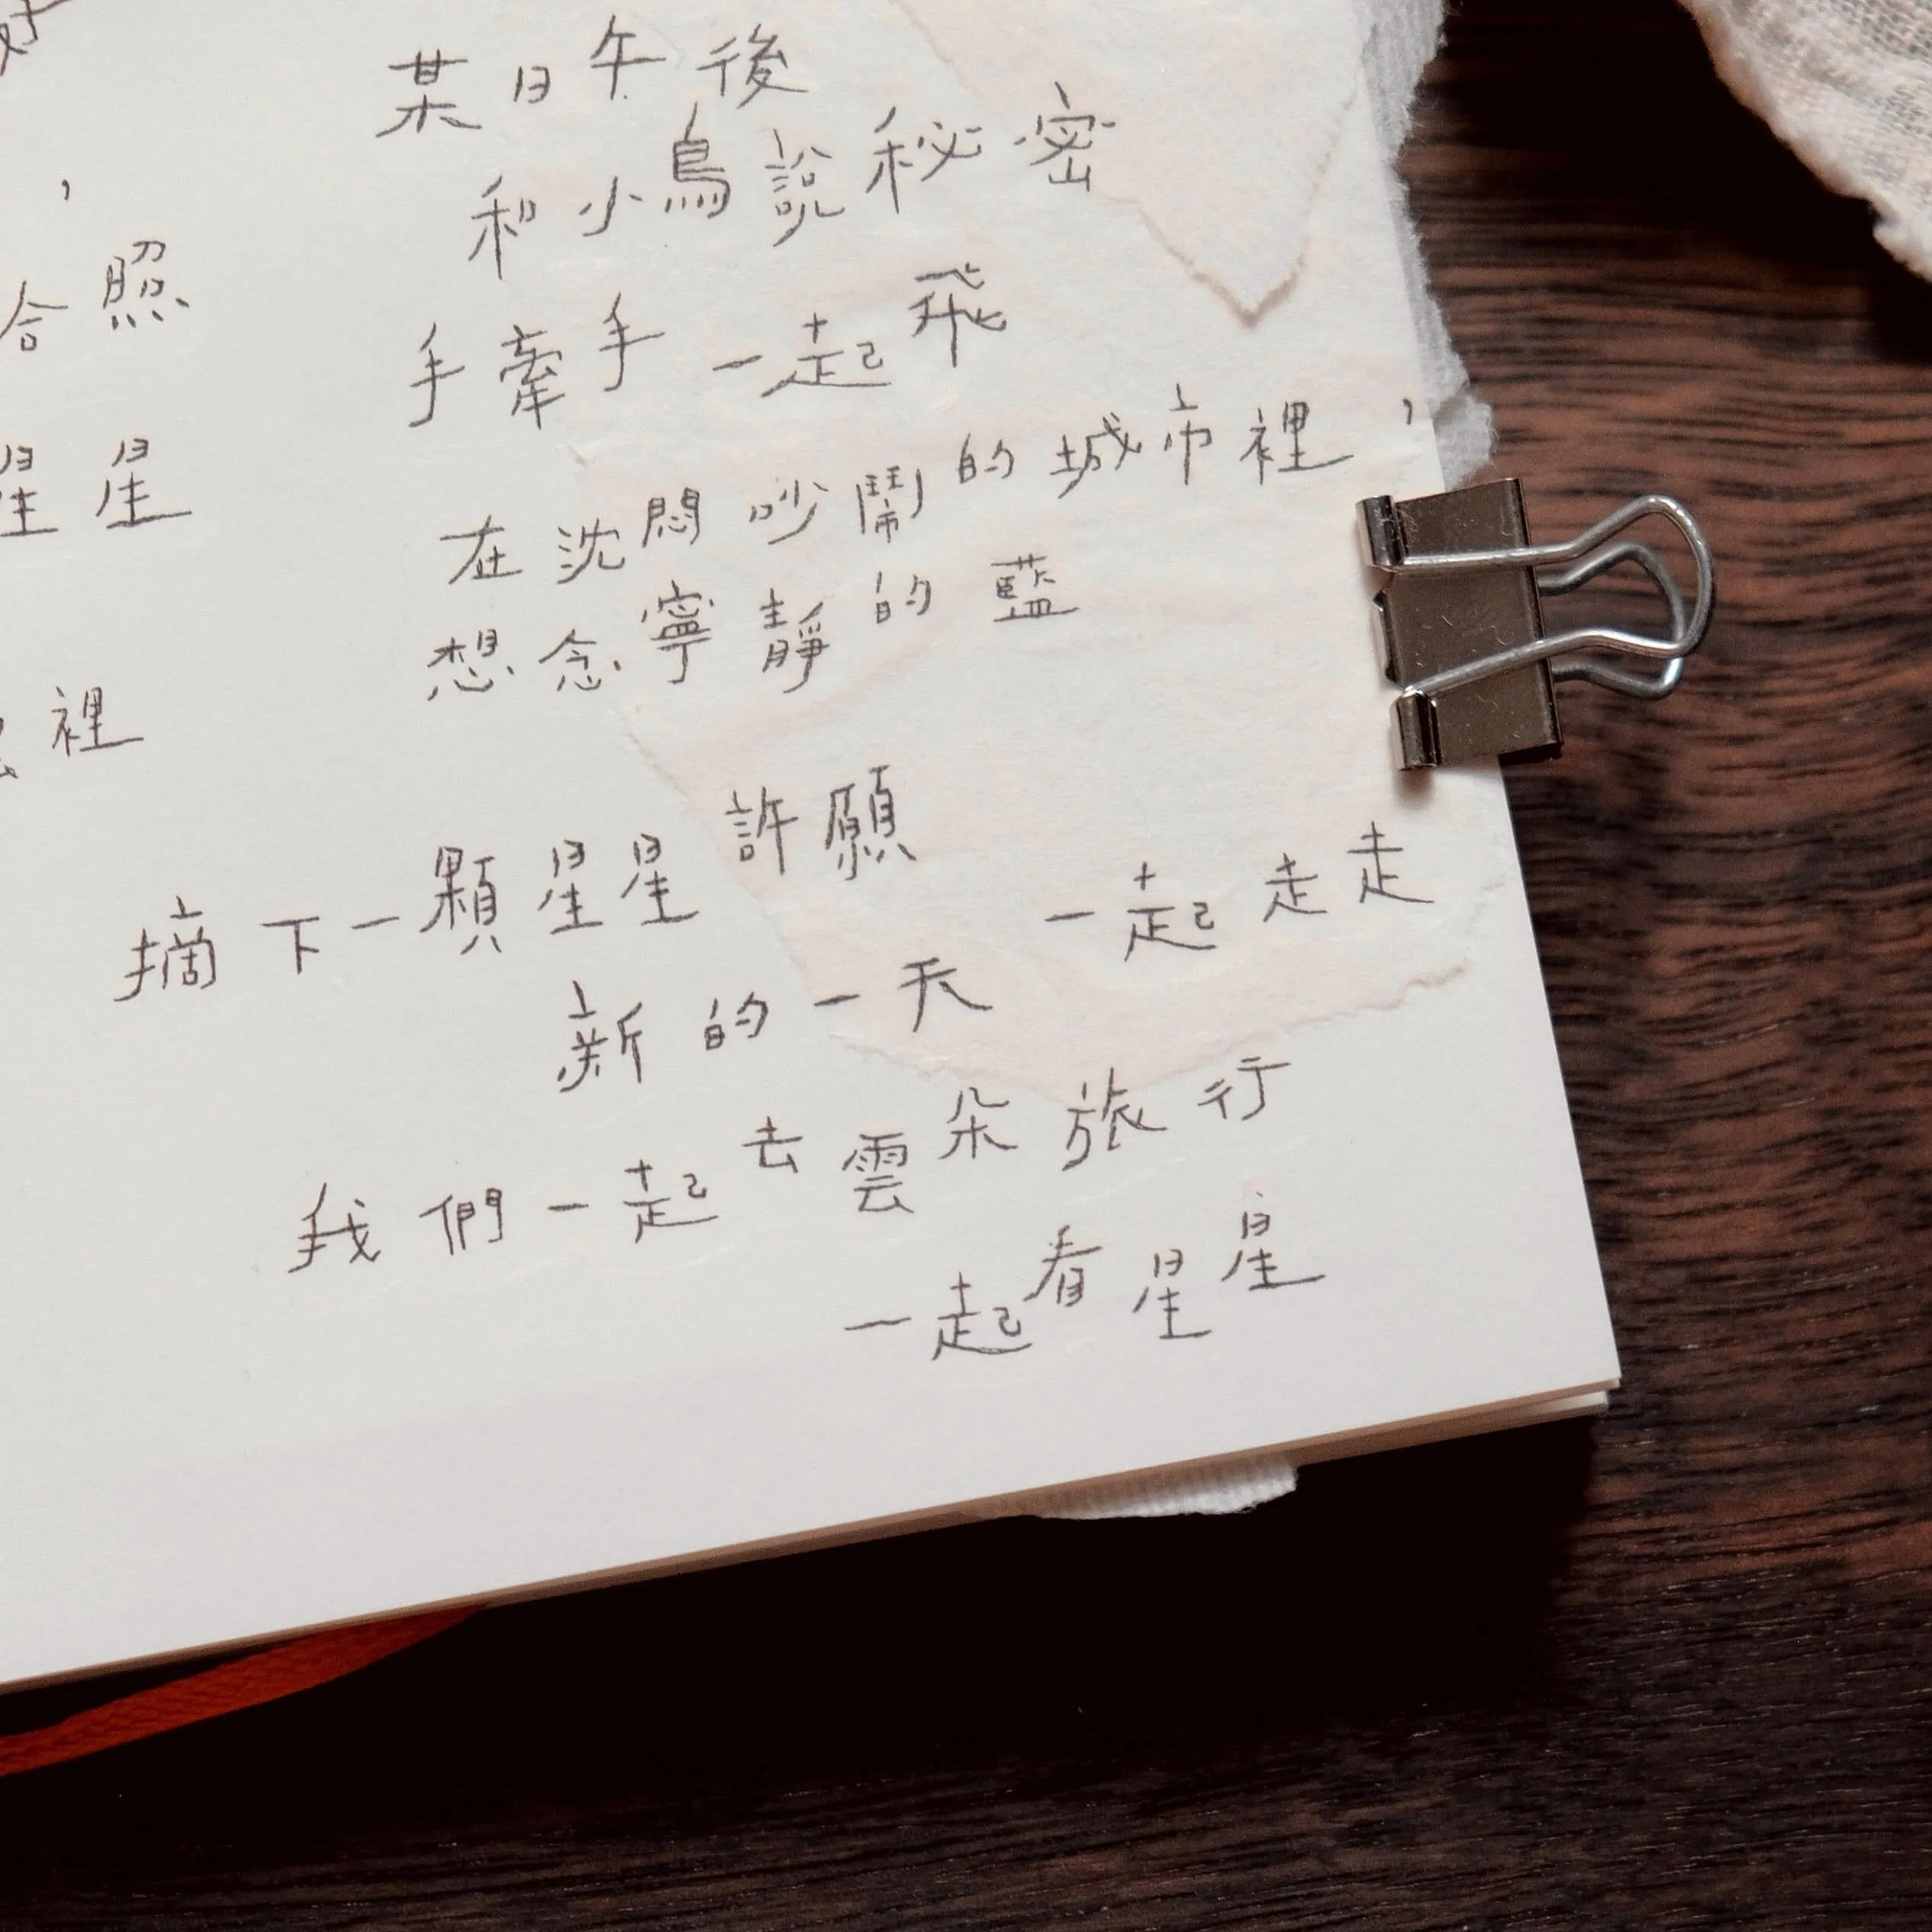 ，
合照
星星
裡
某日午後
和小鳥說秘密
手牽手一起飛
在沈悶吵鬧的城市裡，
想念寧靜的藍
摘下一顆星星許願
新的一天 一起走走
我們一起去雲朵旅行
一起看星星